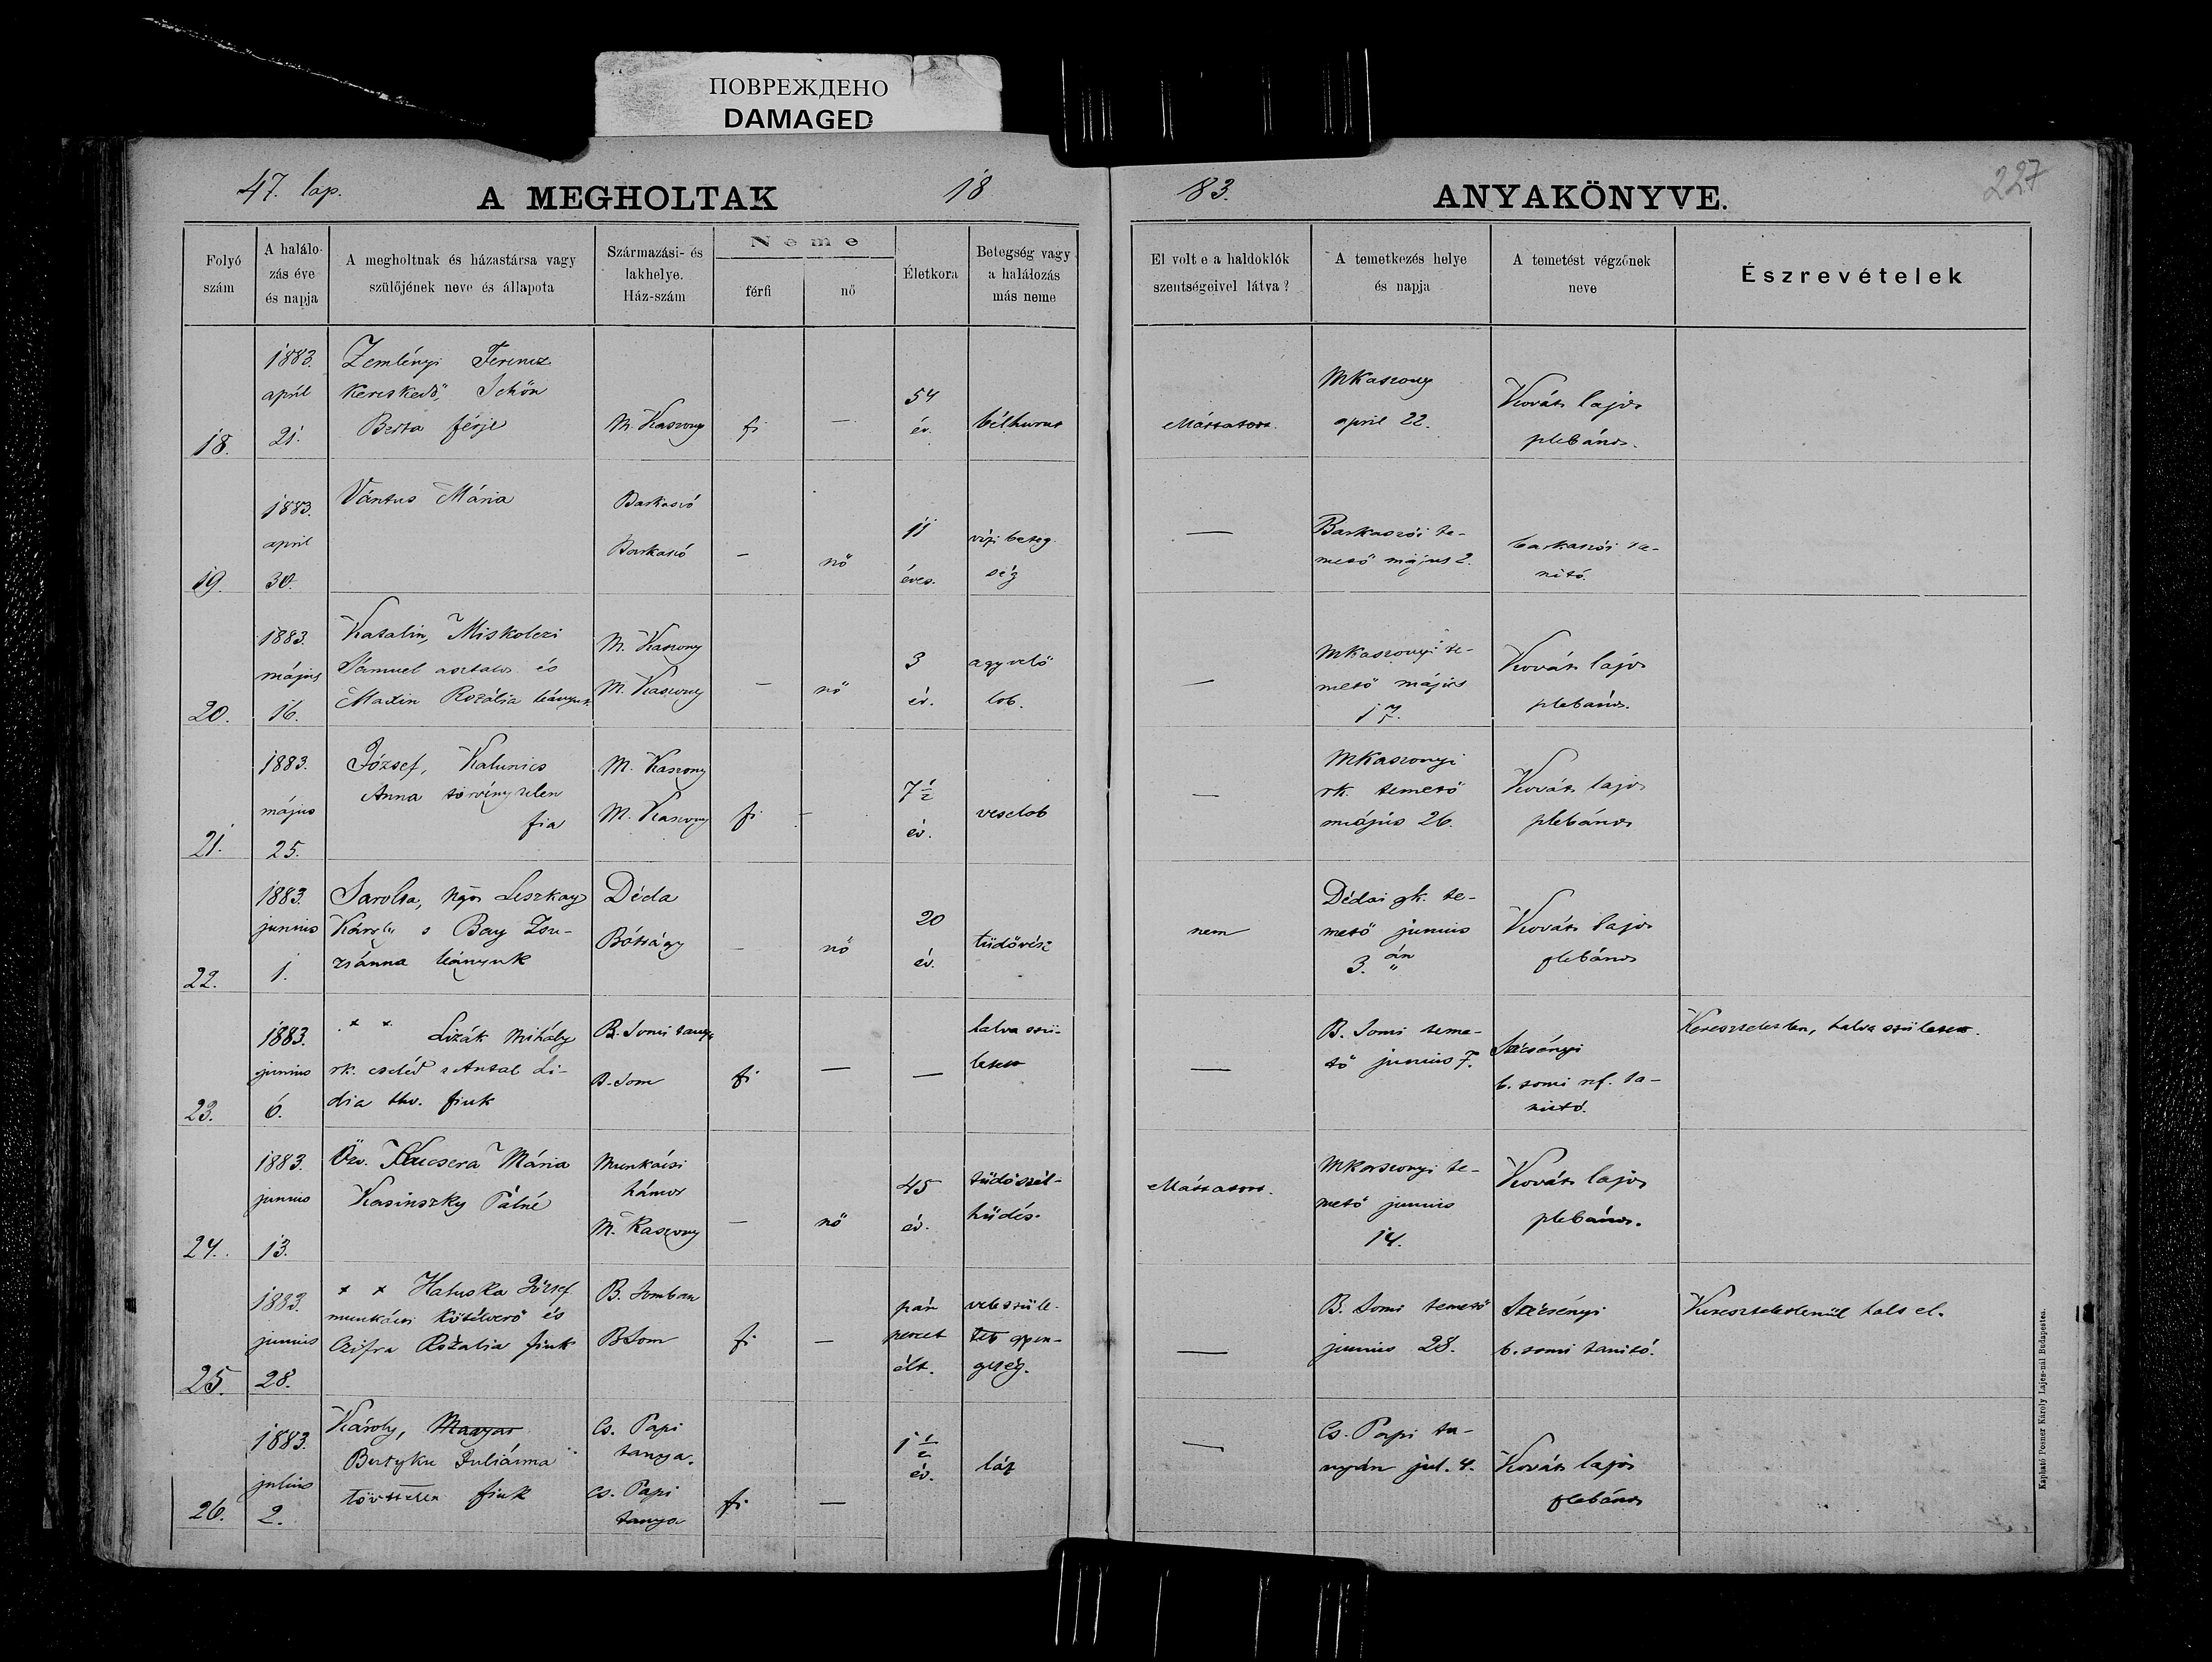 ПОВРЕЖДЕНО
DAMAGED
47. lap.
A MEGHOLTAK
18
83.
ANYAKÖNYVE.
227
Folyó
szám
A halálo-
zás éve
és napja
A megholtnak és házastársa vagy
szülőjének neve és állapota
Származási- és
lakhelye.
Ház-szám
Neme
férfi
nő
Életkora
Betegség vagy
a halálozás
más neme
El volt e a haldoklók
szentségeivel látva?
A temetkezés helye
és napja
A temetést végzőnek
neve
Észrevételek
18.
1883.
april
21.
Zemlényi Ferencz
kereskedő, Schön
Berta férje
M. Kaszony
fi
—
54
év.
bélhurut
MKaszony
april 22.
Kováts lajos
plebános.
19.
1883.
april
30.
Vántus Mária
Barkaszó
Barkaszó
—
nő
11
éves.
vizi beteg
ség
—
Barkaszói te-
mető május 2.
barkaszói ta-
nitó.
20.
1883.
május
16.
Katalin, Miskolczi
Sámuel asztalos és
Rozália leányuk
M. Kaszony
M. Kaszony
—
nő
3
év.
agyvelő
lob.
—
MKaszonyi te-
mető május
17.
Kováts lajos
plebános.
21.
1883.
május
25.
József, Kalunics
Anna törvénytelen
fia
M. Kaszony
M. Kaszony
fi
—
7 1/2
év.
veselob
—
MKaszonyi
rk. temető
május 26.
Kováts lajos
plebános
22.
1883.
junius
1.
Sarolta, Leszkay
Károly s Bay Zsu-
zsánna leányuk
Déda
Bótrágy
—
nő
20
év.
tüdővész
nem
Dédai gk. te-
mető junius
3. án
Kováts lajos
plebános
23.
1883.
junius
6.
+ + Lizák Mihály
rk. cseléd s Antal Li-
dia thv. fiuk
B. Somi tanya
B. Som
fi
—
—
halva szü-
letett
—
B. Somi teme-
tő junius 7.
Szécsényi
b. somi ref. ta-
nitó.
Kereszteletlen, halva született.
24.
1883.
junius
13.
Özv. Kucsera Mária
Kasinszky Pálné
Munkácsi
hámor
M. Kaszony
—
nő
45
év.
tüdőszél-
hüdés.
MKaszonyi te-
mető junius
14.
Kováts lajos
plebános.
25.
1883.
junius
28.
+ + Haluska József
munkácsi kötélverő és
Czifra Rozália fiuk
B. Somban
BSom
fi
—
pár
percet
élt.
veleszüle-
tett gyen-
geség.
—
B. Somi temető
junius 28.
Szécsényi
b. somi tanitó.
Kereszteletlenül halt el.
26.
1883.
julius
2.
Károly, Magyar
Juliánna
fiuk
Cs. Papi
tanya.
Cs. Papi
tanya
fi
—
1 1/2
év.
láz
—
Cs. Papi ta-
nyán jul. 4.
Kováts lajos
plebános
Kapható Posner Károly Lajos-nál Budapesten.